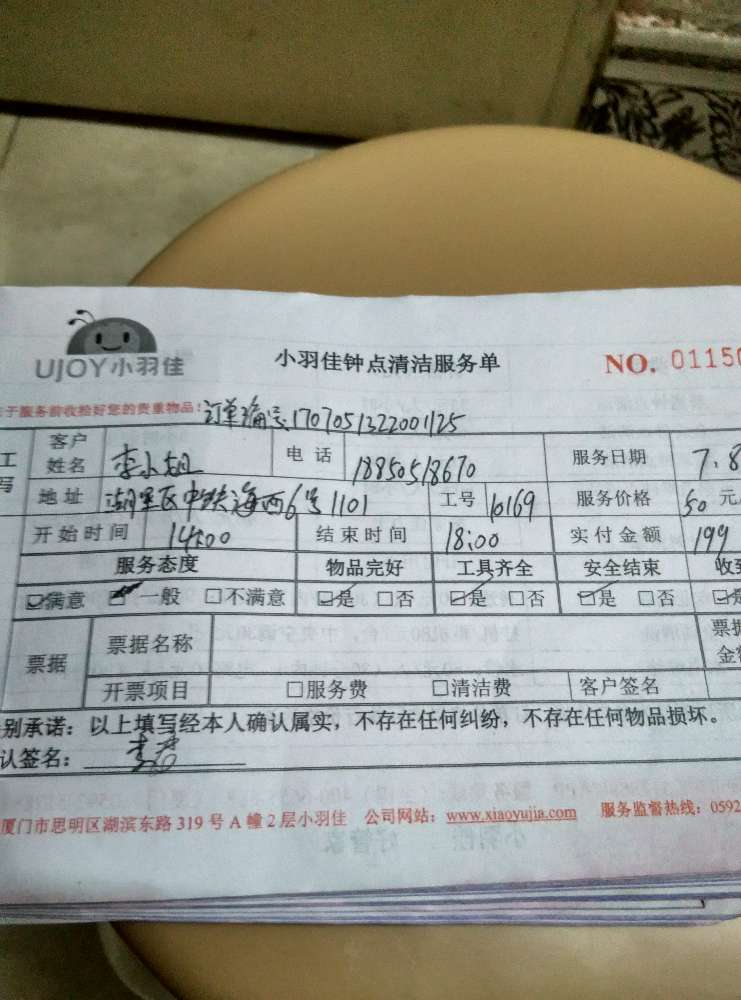 UJOY小羽佳
小羽佳钟点清洁服务单
NO. 0115
于服务前收拾好您的贵重物品！ 订单编号170705132200 1125
客户姓名 李小姐 电话 18850518670 服务日期 7.8
地址 湖里区中铁海西6号1101 工号 10169 服务价格 50元
开始时间 14:00 结束时间 18:00 实付金额 199
服务态度 物品完好 工具齐全 安全结束 收到
☑满意 ☑一般 □不满意 ☑是 □否 ☑是 □否 ☑是 □否
票据 票据名称 票据金
开票项目 □服务费 □清洁费 客户签名
别承诺：以上填写经本人确认属实，不存在任何纠纷，不存在任何物品损坏。
认签名：
厦门市思明区湖滨东路 319 号 A 幢 2 层小羽佳 公司网站：www.xiaoyujia.com 服务监督热线：0592